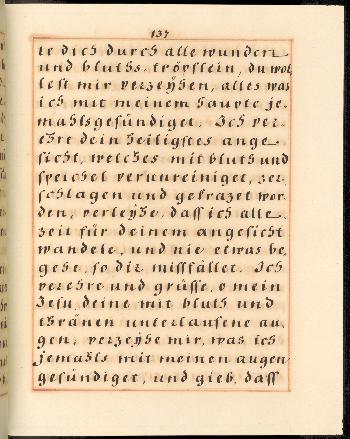 137
te dich durch alle wunden
und bluths-tröpflein, du wol
lest mir verzeÿhen, alles was
ich mit meinem haupte je-
mahls gesündiget. Ich ver-
ehre dein heiligstes ange-
sicht, welches mit bluth und
speichel verunreiniget, zer-
schlagen und gekrazet wor-
den, verleÿhe, daß ich alle-
zeit für deinem angesicht
wandele, und nie etwas be-
gehe, so dir missfället. Ich
verehre und grüsse, o mein
Jesu, deine mit bluth und
thränen unterlaufene au-
gen, verzeÿhe mir, was ich
jemahls mit meinen augen
gesündiget, und gieb, dass